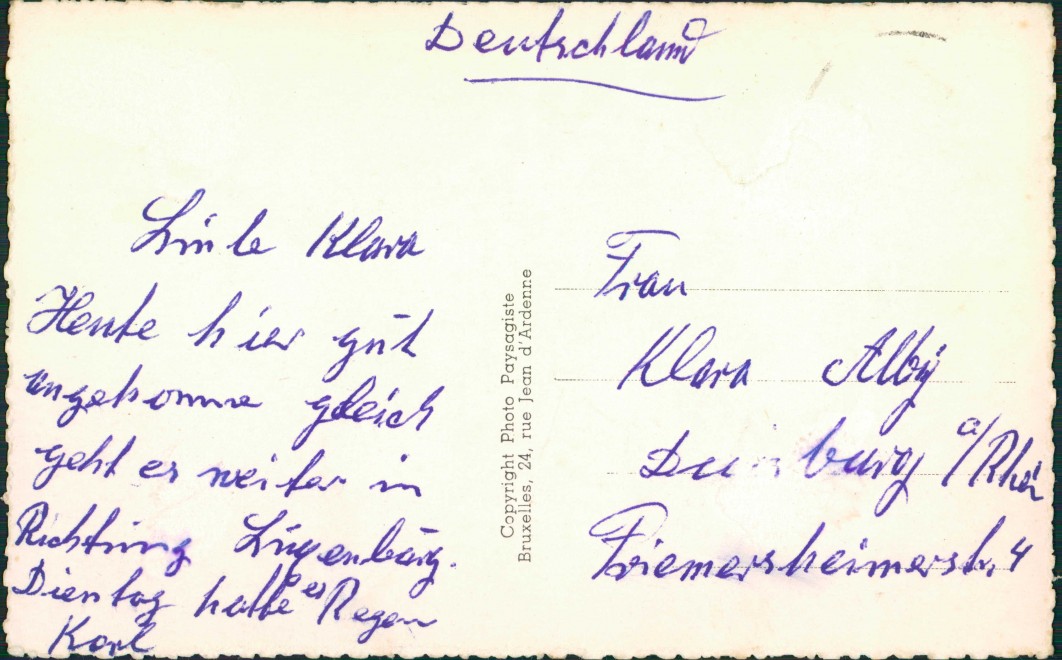 Deutschland
Liebe Klara
Heute hier gut
angekomme gleich
geht es weiter in
Richtung Luxenburg.
Dienstag hatte es Regen
Karl
Copyright Photo Paysagiste
Bruxelles, 24, rue Jean d'Ardenne
Frau
Klara Alby
Duisburg a/Rhei
Friemersheimerstr. 4